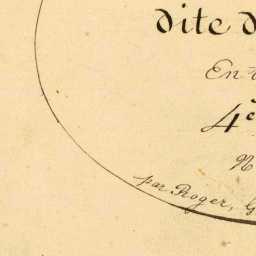 dite d
En
4e
N
par Roger, G